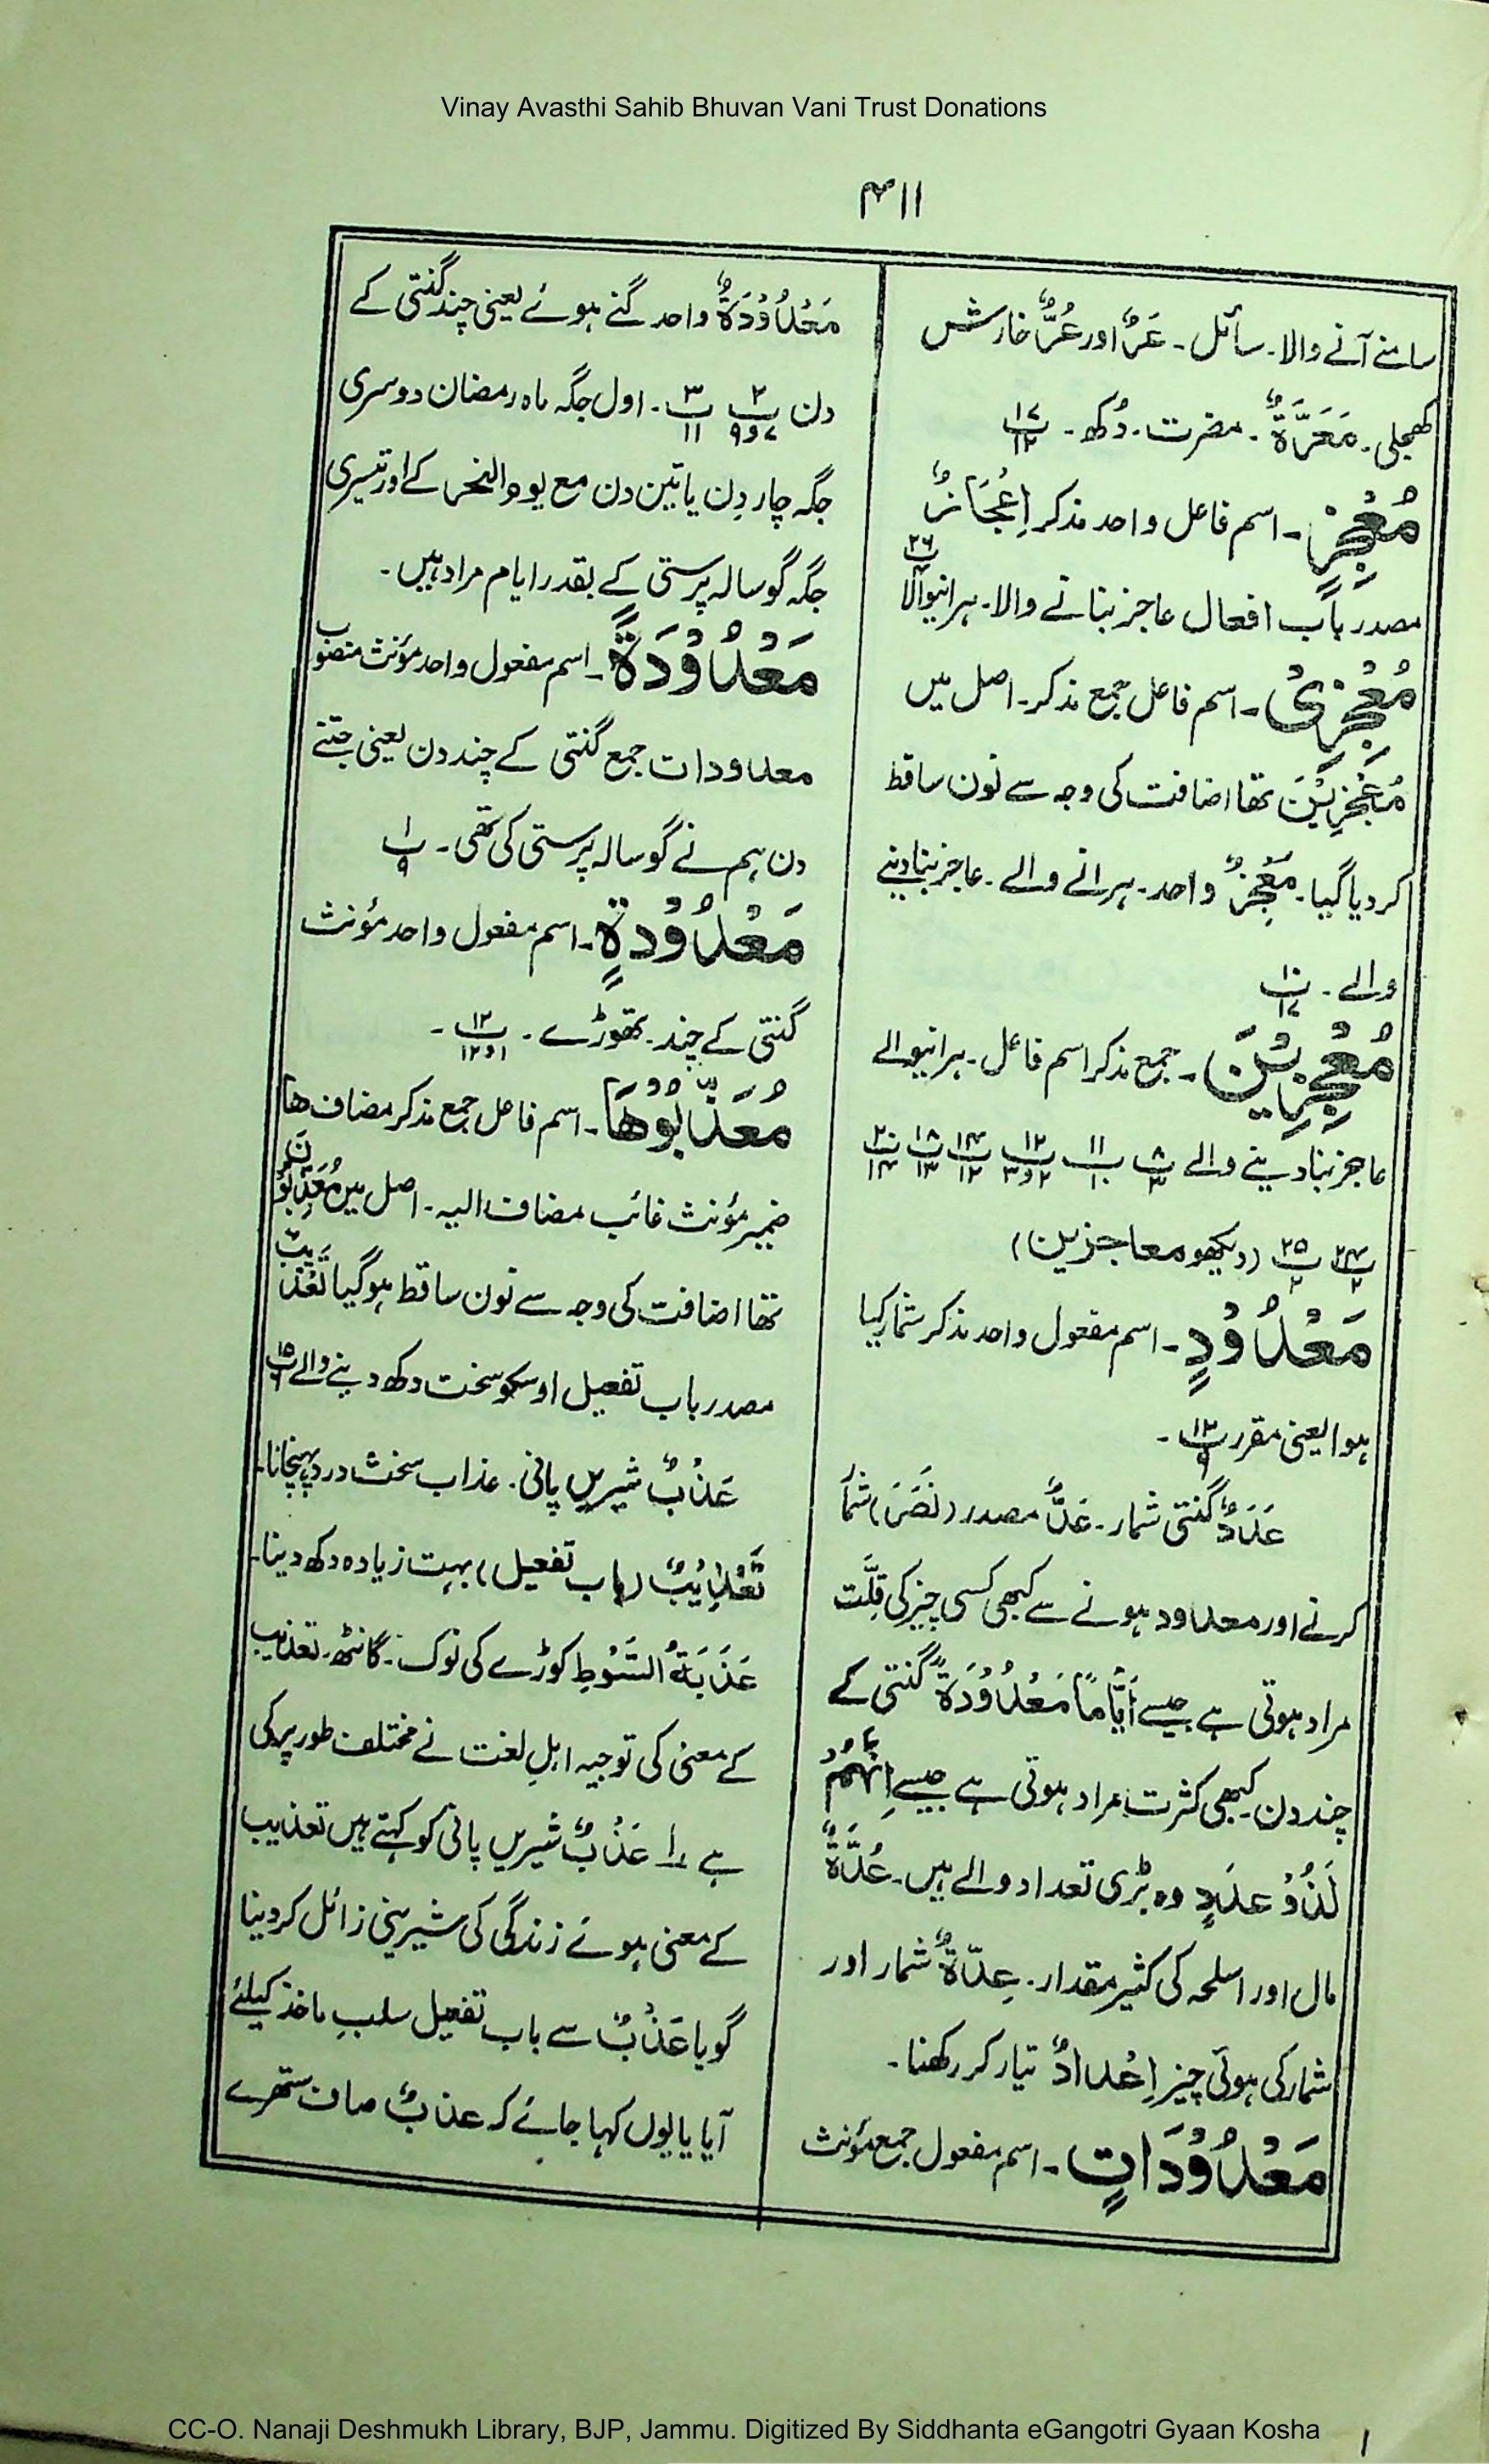 Vinay Avasthi Sahib Bhuvan Vani Trust Donations
۴۱۱
سامنے آنے والا۔ سائل۔ عَرٌّ اور عُرٌّ خارش
کھجلی۔ مَعَرَّةٌ۔ مضرت۔ دُکھ۔ پ ۱۷ ۱۲
مُعْجِزٍ۔ اسم فاعل واحد مذکر اِعْجَازٌ
مصدر باب افعال عاجز بنانے والا۔ ہرانیوالا پ ۲۶ ۴
مُعْجِزِیْ۔ اسم فاعل جمع مذکر۔ اصل میں
مُعْجِزِیْنَ تھا اضافت کی وجہ سے نون ساقط
کر دیا گیا۔ مُعْجِزٌ واحد۔ ہرانے والے۔ عاجز بنا دینے
والے۔ پ ۱۰ ۱۷
مُعْجِزِیْنَ۔ جمع مذکر اسم فاعل۔ ہرانیوالے
عاجز بنا دینے والے پ ۸ ۳ پ ۱۱ ۱۰ پ ۱۲ ۲و۳ پ ۱۴ ۱۲ پ ۱۸ ۱۳ پ ۲۰ ۱۴
پ ۲۴ ۲ پ ۲۵ ۲ (دیکھو معاجزین)
مَعْدُوْدٍ۔ اسم مفعول واحد مذکر شمار کیا
ہوا یعنی مقرر پ ۱۲ ۹۔
عَدَدٌ گنتی شمار۔ عَدٌّ مصدر (نَصَرَ) شمار
کرنے اور معدود ہونے سے کبھی کسی چیز کی قِلّت
مراد ہوتی ہے جیسے اَیَّامًا مَعْدُوْدَةً گنتی کے
چند دن۔ کبھی کثرت مراد ہوتی ہے جیسے اِنَّهُمْ
لَذُوْ عَدَدٍ وہ بڑی تعداد والے ہیں۔ عُدَّةٌ
مال اور اسلحہ کی کثیر مقدار۔ عِدَّةٌ شمار اور
شمار کی ہوئی چیز اِعْدَادٌ تیار کر رکھنا۔
مَعْدُوْدَاتٍ۔ اسم مفعول جمع مؤنث
مَعْدُوْدَةٌ واحد گنے ہوئے یعنی چند گنتی کے
دن پ ۲ ۷و۹ پ ۳ ۱۱۔ اول جگہ ماہ رمضان دوسری
جگہ چار دن یا تین دن مع یوم النحر کے اور تیسری
جگہ گوسالہ پرستی کے بقدر ایام مراد ہیں۔
مَعْدُوْدَةً۔ اسم مفعول واحد مؤنث منصوب
معدودات جمع گنتی کے چند دن یعنی جتنے
دن ہم نے گوسالہ پرستی کی تھی۔ پ ۱ ۹
مَعْدُوْدَةٍ۔ اسم مفعول واحد مؤنث
گنتی کے چند۔ تھوڑے۔ پ ۱۲ ۱و۱۲۔
مُعَذِّبُوْهَا۔ اسم فاعل جمع مذکر مضاف ھا
ضمیر مؤنث غائب مضاف الیہ۔ اصل میں مُعَذِّبُوْنَ
تھا اضافت کی وجہ سے نون ساقط ہو گیا تَعْذِیْبٌ
مصدر باب تفعیل اوسکو سخت دکھ دینے والے پ ۱۵ ۶
عَذْبٌ شیریں پانی۔ عذاب سخت درد پہنچانا۔
تَعْذِیْبٌ (باب تفعیل) بہت زیادہ دکھ دینا۔
عَذَبَةُ السَّوْطِ کوڑے کی نوک۔ گانٹھ۔ تعذیب
کے معنی کی توجیہ اہلِ لغت نے مختلف طور پر کی
ہے ۱ عَذْبٌ شیریں پانی کو کہتے ہیں تعذیب
کے معنی ہوئے زندگی کی شیرینی زائل کر دینا
گویا عَذْبٌ سے باب تفعیل سلبِ ماخذ کیلئے
آیا یا یوں کہا جائے کہ عذبٌ صاف ستھرے
CC-O. Nanaji Deshmukh Library, BJP, Jammu. Digitized By Siddhanta eGangotri Gyaan Kosha